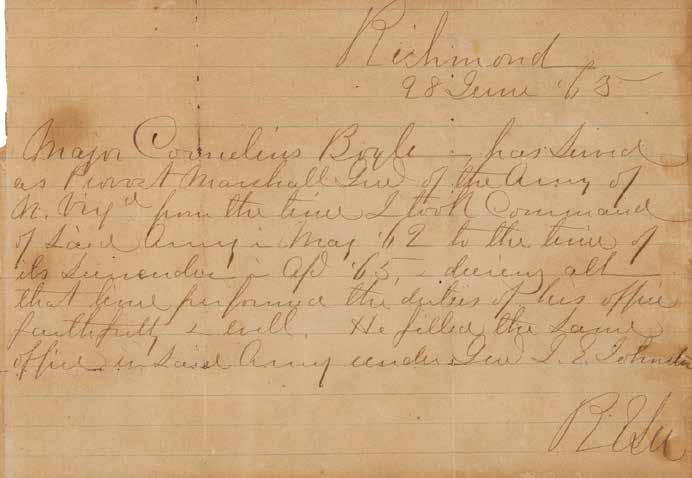 Richmond
28 June '65
Major Cornelius Boyle - has served
as Provost Marshall Genl of the Army of
N. Virga from the time I took Command
of said Army in May '62 to the time of
its surrender in Apl '65, & during all
that time performed the duties of his office
faithfully & well. He filled the same
office in said Army under Genl J. E. Johnston
R E Lee